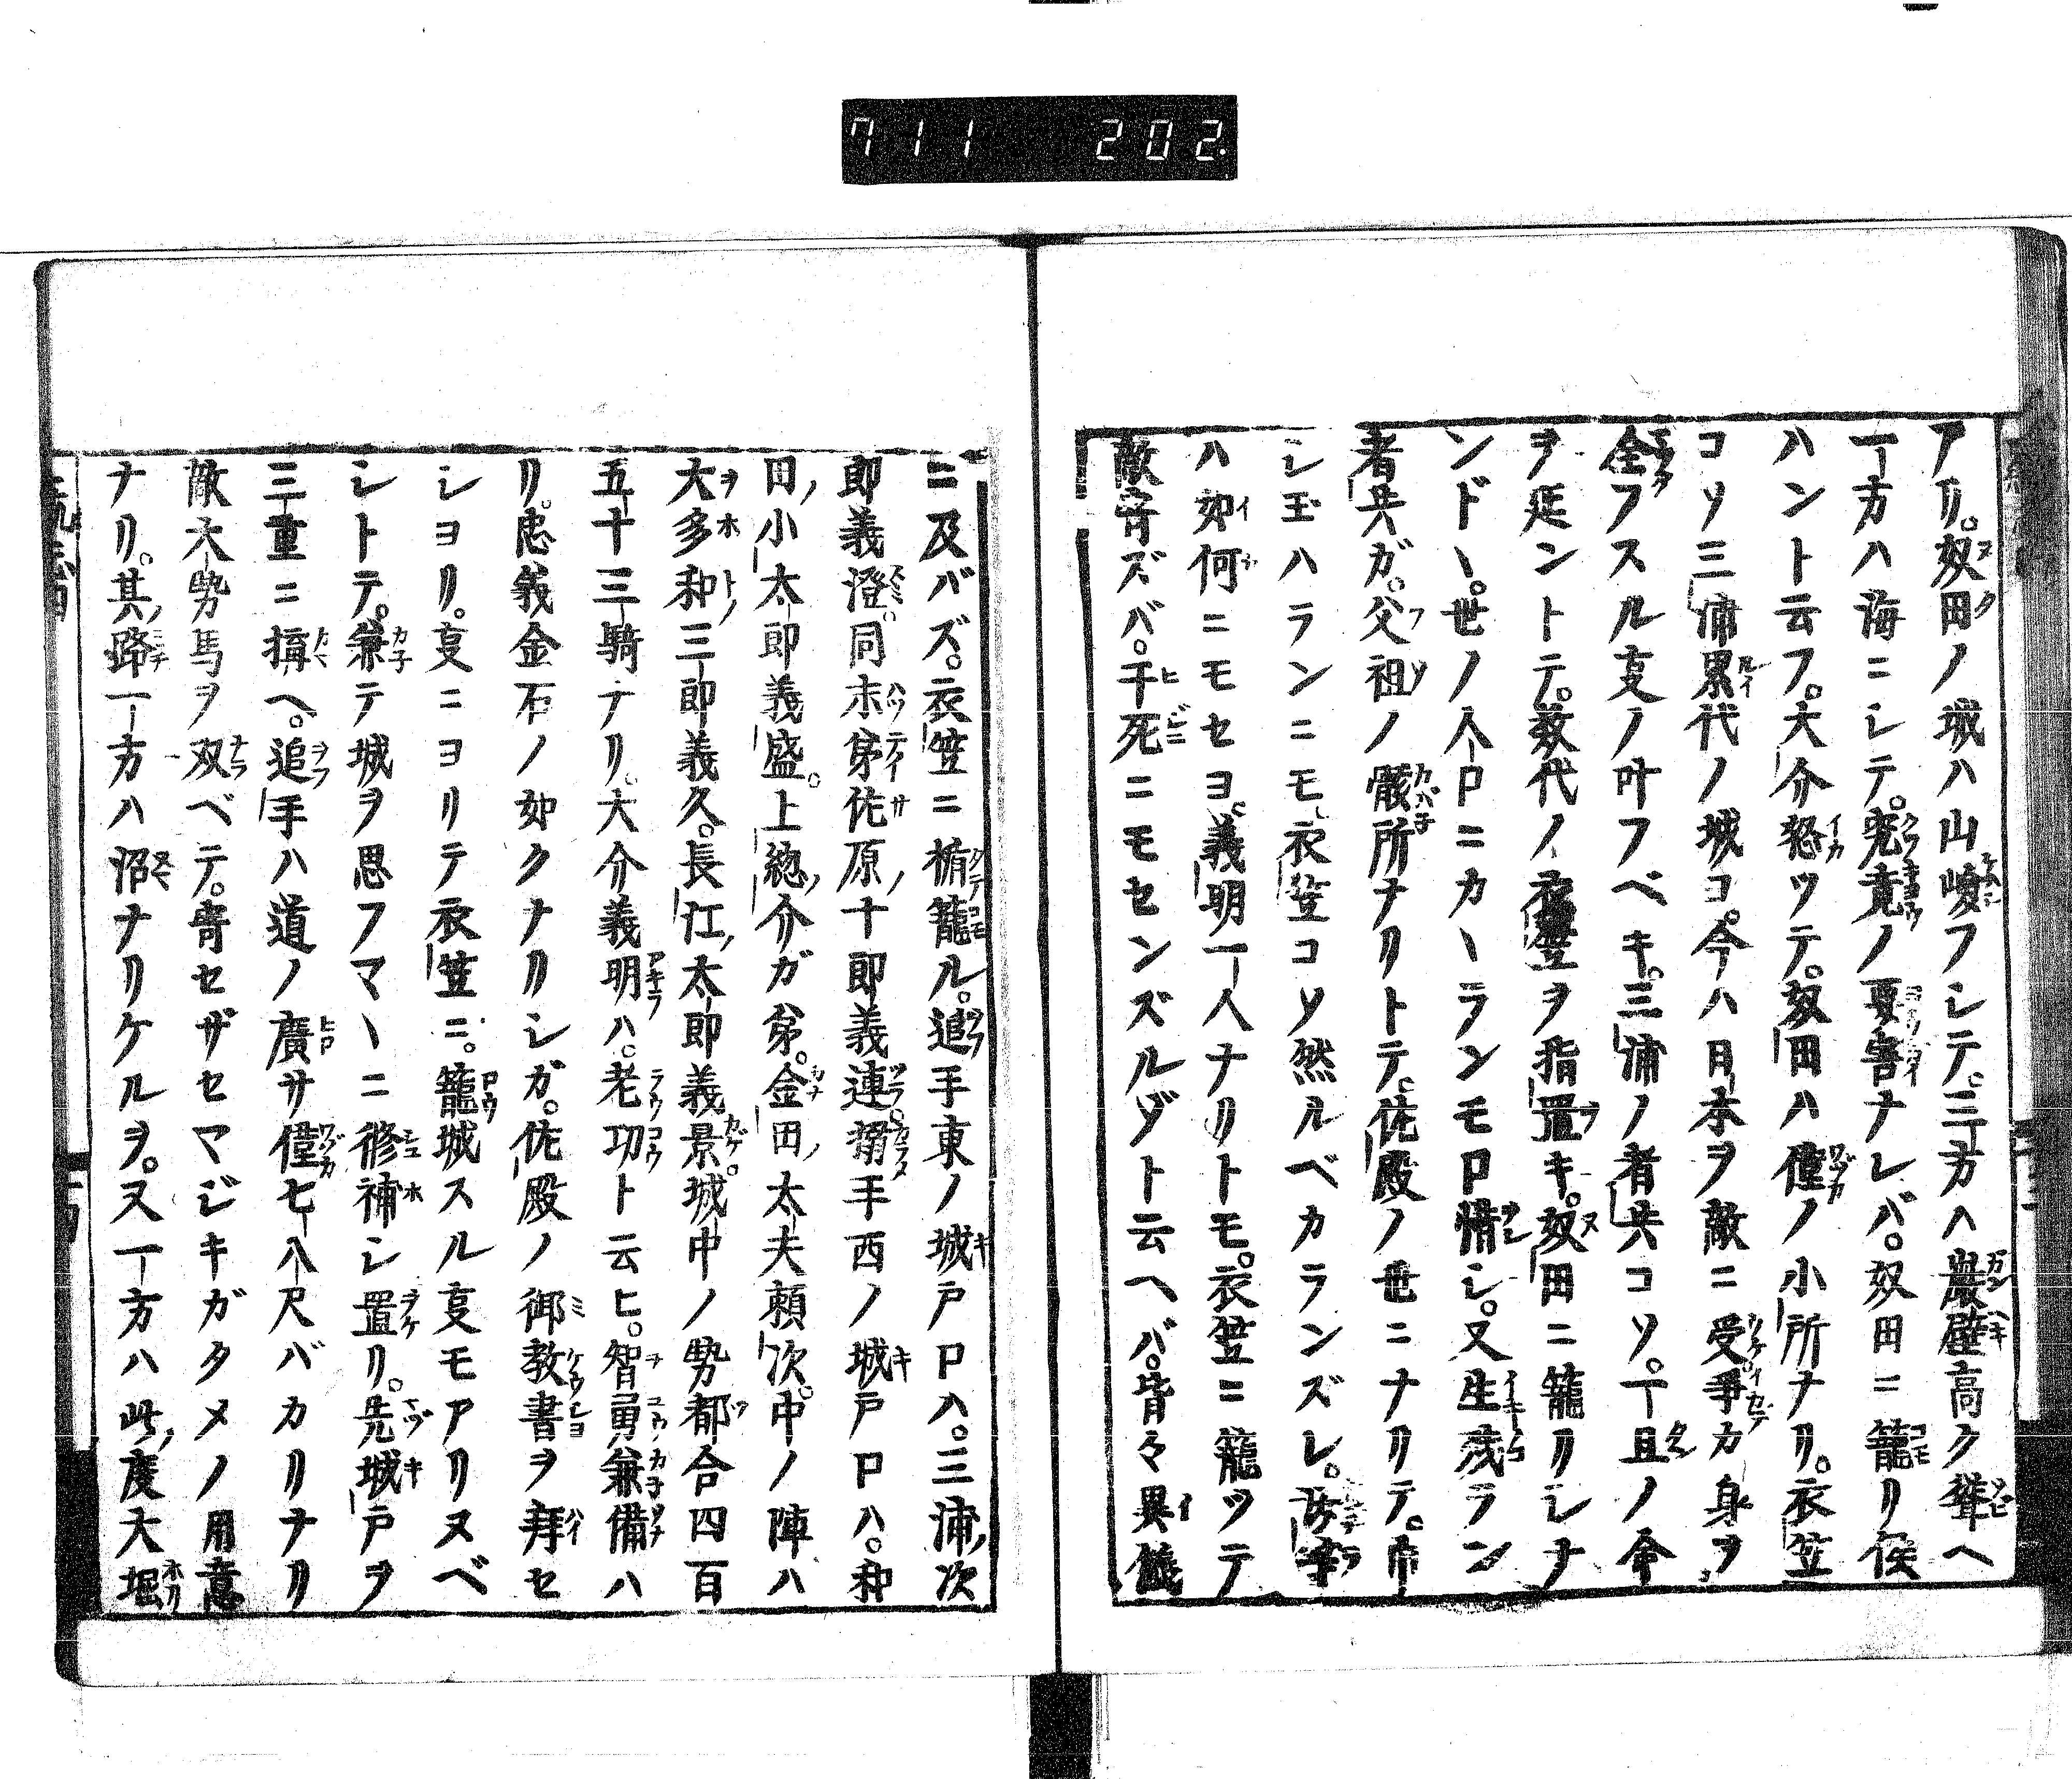 711 202.
アリ。奴田ノ城ハ山嶮フシテ。三方ハ巌壁高ク聳ヘ
一方ハ海ニシテ。究竟ノ要害ナレバ。奴田ニ籠リ候
ハント云フ。大介怒ツテ。奴田ハ僅ノ小所ナリ。衣笠
コソ三浦累代ノ城コ。今ハ日本ヲ敵ニ受。爭カ身ヲ
全フスル夏ノ叶フベキ。三浦ノ者共コソ。一旦ノ命
ヲ延ントテ。数代ノ衣笠ヲ指置キ。奴田ニ籠リシナ
ンド丶。世ノ人口ニカ丶ランモ口惜シ。又生残ラン
者共ガ。父祖ノ骸所ナリトテ。佐殿ノ世ニナリテ。帝
シ玉ハランニモ。衣笠コソ然ルベカランズレ。汝等
ハ如何ニモセヨ。義明一人ナリトモ。衣笠ニ籠ツテ
敵寄ズバ。干死ニモセンズルゾト云ヘバ。皆々異儀
ニ及バズ。衣笠ニ楯籠ル。追手東ノ城戸口ハ。三浦次
郎義澄。同末弟佐原十郎義連。搦手西ノ城戸口ハ。和
田小太郎義盛。上總介ガ弟。金田太夫頼次。中ノ陣ハ
大多和三郎義久。長江太郎義景。城中ノ勢都合四百
五十三騎ナリ。大介義明ハ。老功ト云ヒ。智勇兼備ハ
リ。忠義金石ノ如クナリシガ。佐殿ノ御教書ヲ拜セ
シヨリ。夏ニヨリテ衣笠ニ。籠城スル夏モアリヌベ
シトテ。兼テ城ヲ思フマ丶ニ修補シ置リ。先城戸ヲ
三重ニ搆ヘ。追手ハ道ノ廣サ僅七八尺バカリナリ
敵大勢馬ヲ双ベテ。寄セザセマジキガタメノ用意
ナリ。其路一方ハ沼ナリケルヲ。又一方ハ此度大堀